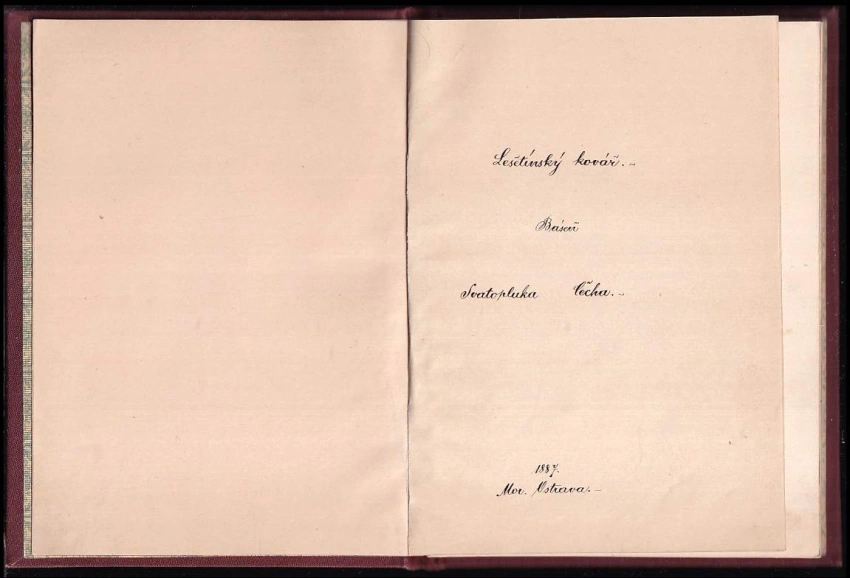 Lešetínský kovář.–
Báseň
Svatopluka Čecha.–
1887.
Mor. Ostrava.–